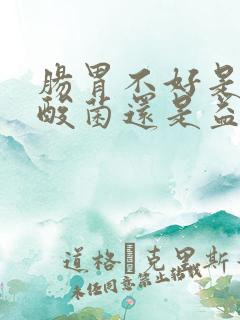 腸胃不好是
酸菌還是益
道格 克里斯
未经同意禁止转载